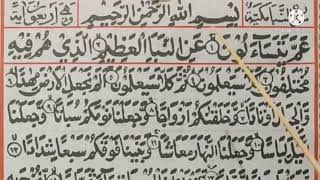 بِسْمِ اللّٰهِ الرَّحْمٰنِ الرَّحِيْمِ
عَمَّ يَتَسَآءَلُوْنَ ۚ‏﴿۱﴾ عَنِ النَّبَاِ الْعَظِيْمِ ۙ‏﴿۲﴾ الَّذِىْ هُمْ فِيْهِ
مُخْتَلِفُوْنَ ؕ‏﴿۳﴾ كَلَّا سَيَعْلَمُوْنَ ۙ‏﴿۴﴾ ثُمَّ كَلَّا سَيَعْلَمُوْنَ ‏﴿۵﴾ اَلَمْ نَجْعَلِ الْاَرْضَ مِهٰدًا ۙ‏﴿۶﴾
وَّالْجِبَالَ اَوْتَادًا ۙ‏﴿۷﴾ وَّخَلَقْنٰكُمْ اَزْوَاجًا ۙ‏﴿۸﴾ وَّجَعَلْنَا نَوْمَكُمْ سُبَاتًا ۙ‏﴿۹﴾ وَّجَعَلْنَا
الَّيْلَ لِبَاسًا ۙ‏﴿۱۰﴾ وَّجَعَلْنَا النَّهَارَ مَعَاشًا ۙ‏﴿۱۱﴾ وَّبَنَيْنَا فَوْقَكُمْ سَبْعًا شِدَادًا ۙ‏﴿۱۲﴾